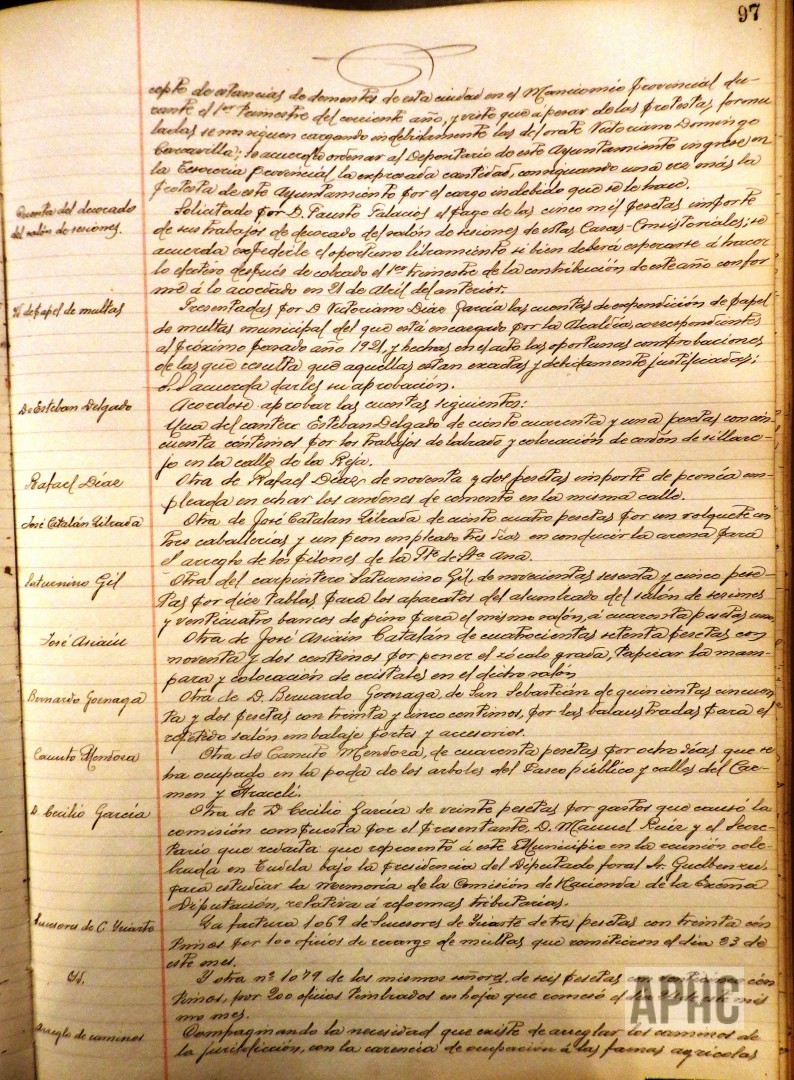 97
cepto de estancias de dementes de esta ciudad en el Manicomio Provincial du-
rante el 1er trimestre del corriente año, y visto que á pesar de las protestas formu
ladas se nos siguen cargando indebidamente las del orate Victoriano Domingo
se acuerda ordenar al Depositario de este Ayuntamiento ingrese en
la Tesoreria provincial la expresada cantidad, consignando una vez más la
protesta de este Ayuntamiento por el cargo indebido que se le hace.
Cuenta del decorado
del salón de sesiones.
Solicitado por D. Fausto Palacios el pago de las cinco mil pesetas importe
de sus trabajos de decorado del salón de sesiones de estas Casas-Consistoriales; se
acuerda expedirle el oportuno libramiento si bien deberá esperarse á hacer
lo efectivo después de cobrado el 1er trimestre de la contribución de este año confor
me á lo acordado en 21 de Abril del anterior.
Id de papel de multas
Presentadas por D Victoriano Diaz García las cuentas de expendición de papel
de multas municipal del que está encargado por la Alcaldía correspondientes
al próximo pasado año 1921, y hechas en el acto las oportunas comprobaciones
de las que resulta que aquéllas estan exactas y debidamente justificadas;
se acuerda darles su aprobación.
De Esteban Delgado
Acordose aprobar las cuentas siguientes:
Una del cantero Esteban Delgado de ciento cuarenta y una pesetas con cin-
cuenta céntimos por los trabajos de labrado y colocación de cordón de sillare-
jo en la calle de la Reja.
Rafael Díaz
Otra de Rafael Díaz, de noventa y dos pesetas importe de peonía em-
pleada en echar los andenes de cemento en la misma calle.
José Catalán Gilrada
Otra de José Catalan Gilrada de ciento cuatro pesetas por un volquete con
tres caballerias y un peon empleado tres dias en conducir la arena para
el arreglo de los pilones de la Fte de Sta Ana.
Saturnino Gil
Otra del carpintero Saturnino Gil, de novecientas sesenta y cinco pese-
tas por diez tablas para los aparatos del alumbrado del salón de sesiones
y venticuatro bancos de pino para el mismo salón, á cuarenta pesetas uno.
José Asiaín
Otra de José Asiain Catalan de cuatrocientas setenta pesetas con
noventa y dos centimos por poner el zócalo grasa, tapizar la mam-
para y colocación de cristales en el dicho salón
Bernardo Gornaga
Otra de D. Bernardo Gornaga, de San Sebastián de quinientas cincuen
ta y dos pesetas con treinta y cinco centimos, por las balaustradas para el
repetido salón embalaje portes y accesorios.
Canuto Mendoza
Otra de Canuto Mendoza, de cuarenta pesetas por ocho días que se
ha ocupado en la poda de los arboles del Paseo público y calles del Car-
men y Araceli.
D. Cecilio García
Otra de D Cecilio García de veinte pesetas por gastos que causó la
comisión compuesta por el presentante, D. Manuel Ruiz y el Secre-
tario que redacta que representó á este Municipio en la reunión cele-
brada en Tudela bajo la presidencia del Diputado foral Sr. Guelbenzu,
para estudiar la Memoria de la Comisión de Hacienda de la Excma
Diputación, relativa á reformas tributarias.
Sucesores de C. Yriarte
La factura 1069 de Sucesores de Yriarte de tres pesetas con treinta cén
timos por 100 oficios de recargo de multas que remitieron el dia 23 de
este mes.
Id.
Y otra nº 1079 de los mismos señores, de seis pesetas con cén
timos, por 200 oficios timbrados en hoja que de este mis
mo mes.
Arreglo de caminos
Compaginando la necesidad que existe de arreglar los caminos de
la jurisdicción, con la carencia de ocupación á las faenas agrícolas
APHC